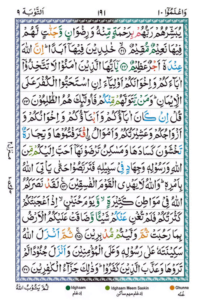 وَاعْلَمُوْٓا ۱۰ ۱۹۱ اَلتَّوْبَة ۹
يُبَشِّرُهُمْ رَبُّهُمْ بِرَحْمَةٍ مِّنْهُ وَرِضْوَانٍ وَّجَنّٰتٍ لَّهُمْ
فِيْهَا نَعِيْمٌ مُّقِيْمٌ خٰلِدِيْنَ فِيْهَآ اَبَدًا اِنَّ اللّٰهَ
عِنْدَهٗٓ اَجْرٌ عَظِيْمٌ يٰٓاَيُّهَا الَّذِيْنَ اٰمَنُوْا لَا تَتَّخِذُوْٓا
اٰبَآءَكُمْ وَاِخْوَانَكُمْ اَوْلِيَآءَ اِنِ اسْتَحَبُّوا الْكُفْرَ عَلَى
الْاِيْمَانِ وَمَنْ يَّتَوَلَّهُمْ مِّنْكُمْ فَاُولٰٓئِكَ هُمُ الظّٰلِمُوْنَ
قُلْ اِنْ كَانَ اٰبَآؤُكُمْ وَاَبْنَآؤُكُمْ وَاِخْوَانُكُمْ وَ
اَزْوَاجُكُمْ وَعَشِيْرَتُكُمْ وَاَمْوَالُ ِۨاقْتَرَفْتُمُوْهَا وَتِجَارَةٌ
تَخْشَوْنَ كَسَادَهَا وَمَسٰكِنُ تَرْضَوْنَهَآ اَحَبَّ اِلَيْكُمْ مِّنَ
اللّٰهِ وَرَسُوْلِهٖ وَجِهَادٍ فِيْ سَبِيْلِهٖ فَتَرَبَّصُوْا حَتّٰى يَاْتِيَ اللّٰهُ
بِاَمْرِهٖ وَاللّٰهُ لَا يَهْدِي الْقَوْمَ الْفٰسِقِيْنَ لَقَدْ نَصَرَكُمُ
اللّٰهُ فِيْ مَوَاطِنَ كَثِيْرَةٍ وَّيَوْمَ حُنَيْنٍ اِذْ اَعْجَبَتْكُمْ
كَثْرَتُكُمْ فَلَمْ تُغْنِ عَنْكُمْ شَيْـًٔا وَّضَاقَتْ عَلَيْكُمُ الْاَرْضُ
بِمَا رَحُبَتْ ثُمَّ وَلَّيْتُمْ مُّدْبِرِيْنَ ثُمَّ اَنْزَلَ اللّٰهُ
سَكِيْنَتَهٗ عَلٰى رَسُوْلِهٖ وَعَلَى الْمُؤْمِنِيْنَ وَاَنْزَلَ جُنُوْدًا لَّمْ
تَرَوْهَا وَعَذَّبَ الَّذِيْنَ كَفَرُوْا وَذٰلِكَ جَزَآءُ الْكٰفِرِيْنَ
Idghaam
Idghaam Meem Saakin
Ghunna